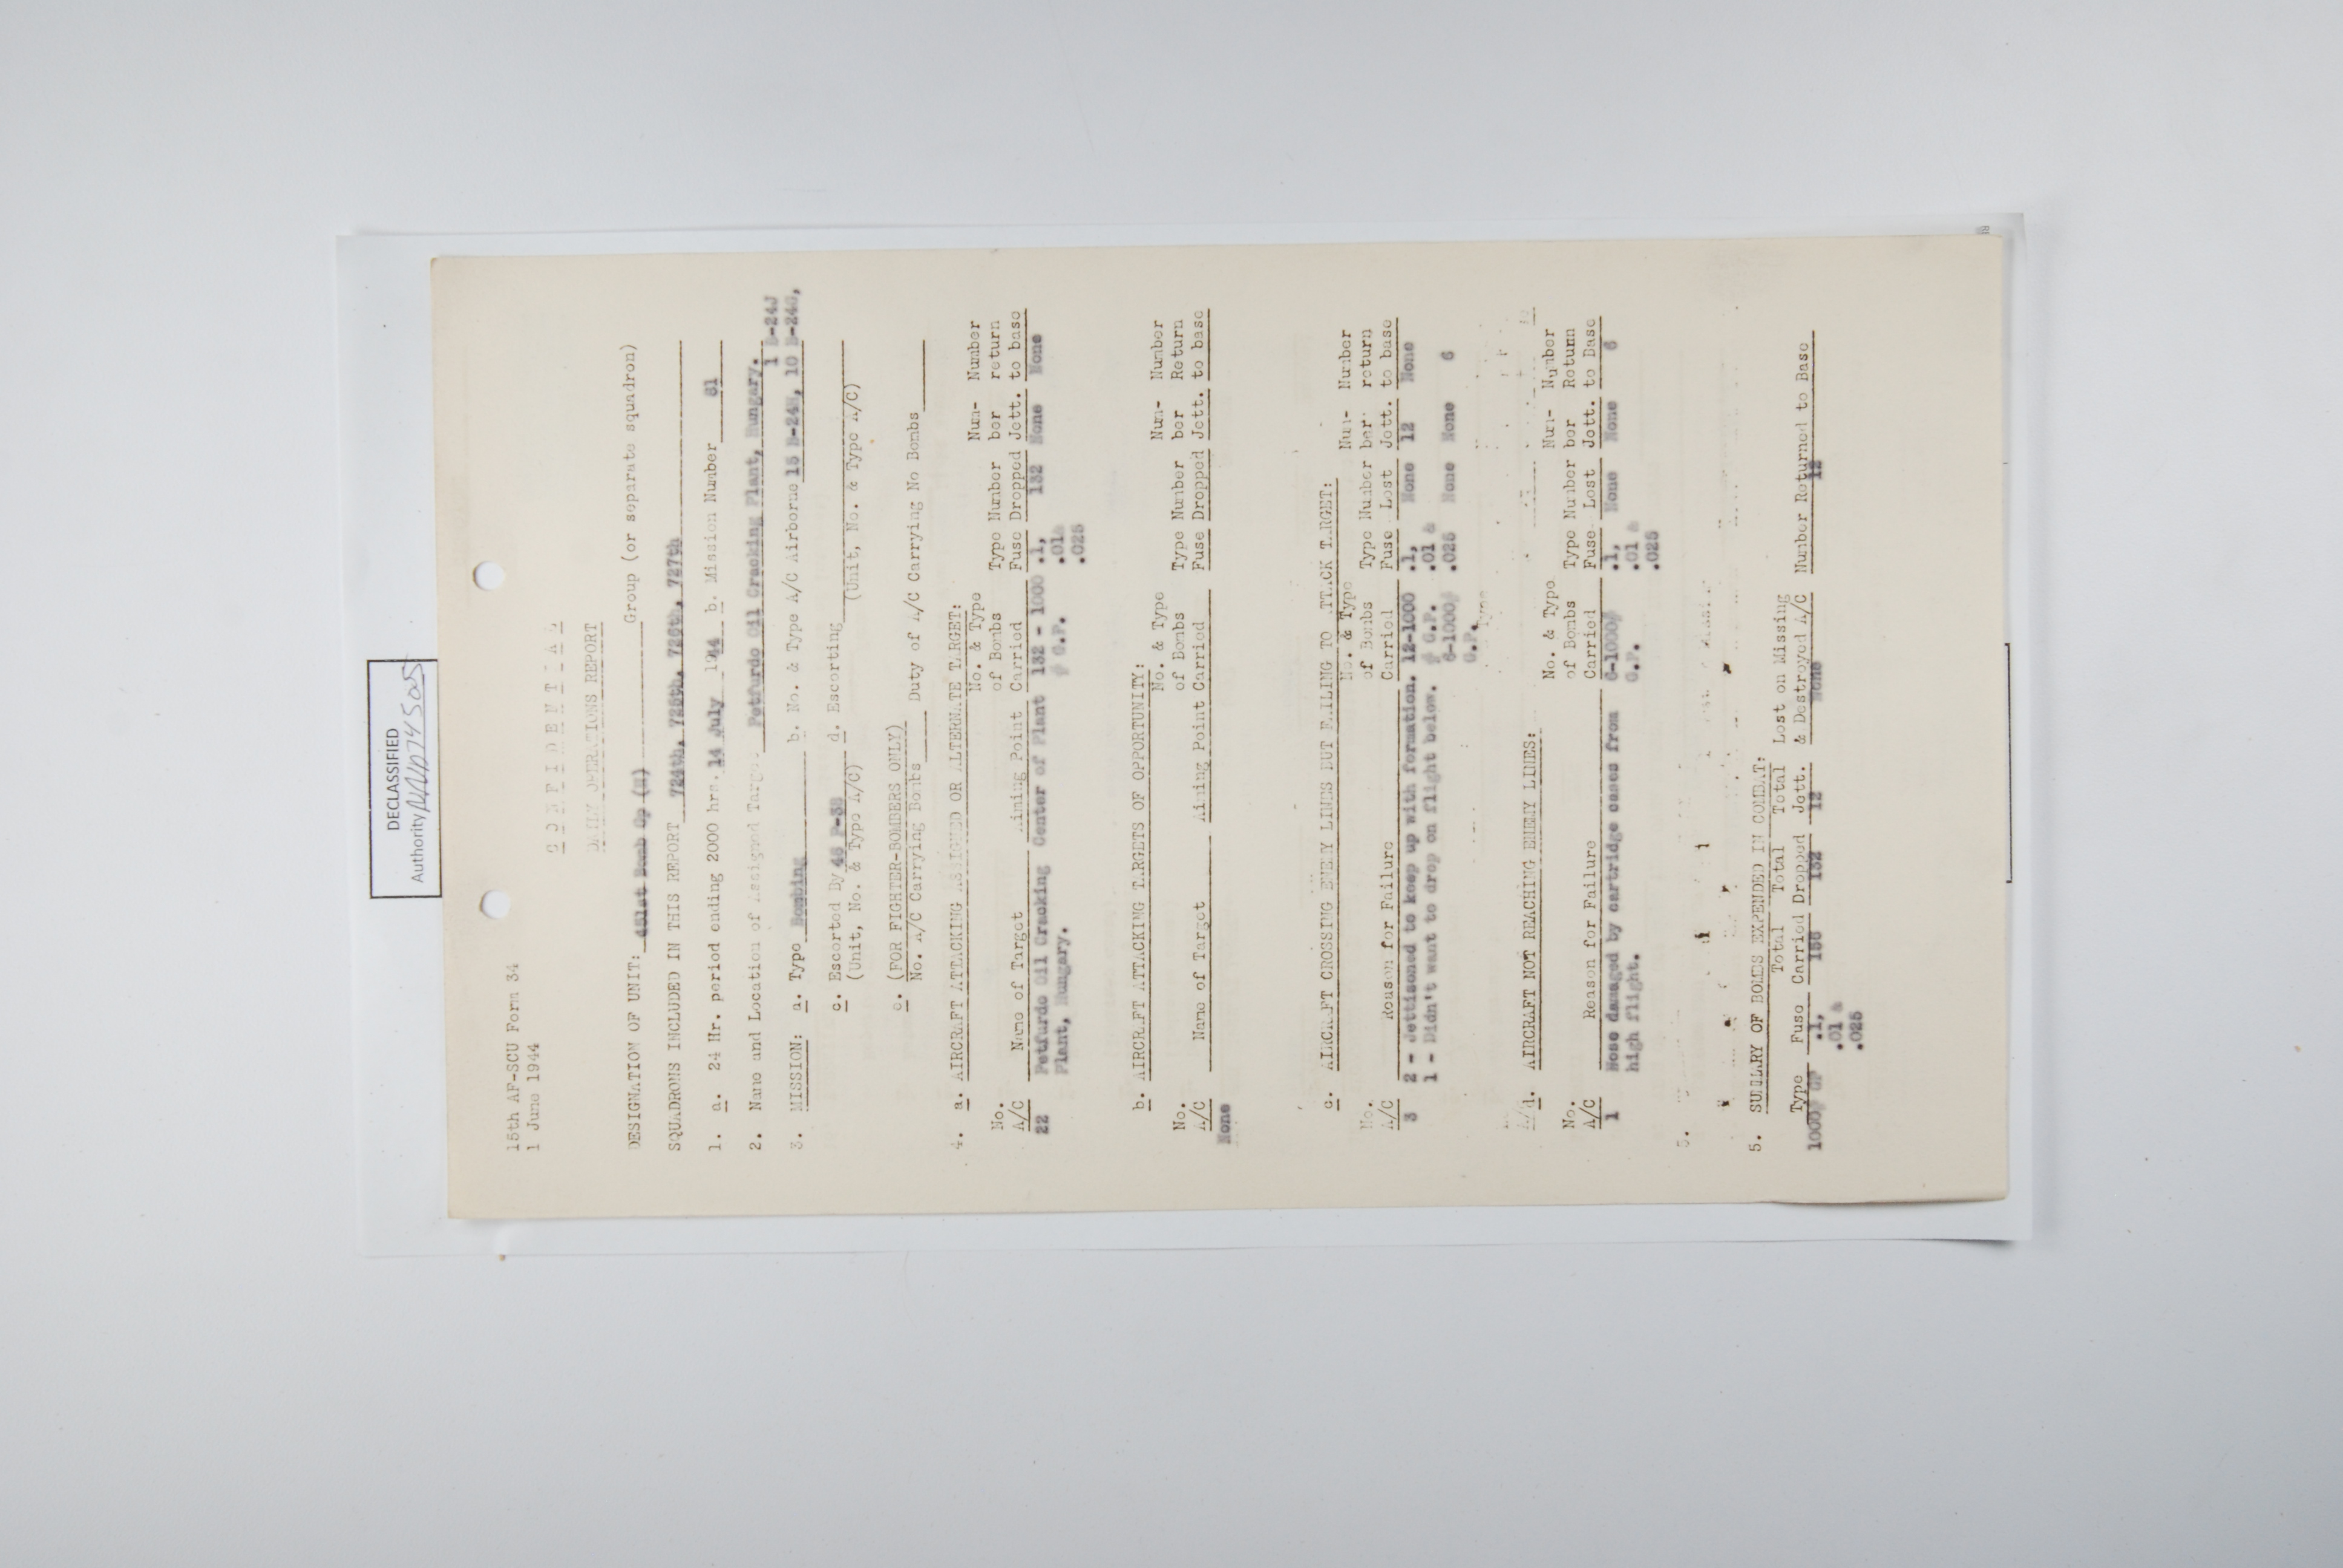 DECLASSIFIED
Authority NND745005
15th AF-SCU Form 34
1 June 1944
C O N F I D E N T I A L
DAILY OPERATIONS REPORT
DESIGNATION OF UNIT: 451st Bomb Gp (H) Group (or separate squadron)
SQUADRONS INCLUDED IN THIS REPORT 724th, 725th, 726th, 727th
1. a. 24 Hr. period ending 2000 hrs. 14 July 1944 b. Mission Number 81
2. Name and Location of Assigned Target Petfurdo Oil Cracking Plant, Hungary.
1 B-24J
3. MISSION: a. Type Bombing b. No. & Type A/C Airborne 15 B-24H, 10 B-24G,
c. Escorted By 45 P-38 d. Escorting
(Unit, No. & Type A/C) (Unit, No. & Type A/C)
e. (FOR FIGHTER-BOMBERS ONLY)
No. A/C Carrying Bombs Duty of A/C Carrying No Bombs
4. a. AIRCRAFT ATTACKING ASSIGNED OR ALTERNATE TARGET:
No. & Type Num- Number
No. of Bombs Type Number ber return
A/C Name of Target Aiming Point Carried Fuse Dropped Jett. to base
22 Petfurdo Oil Cracking Center of Plant 132 - 1000 .1, 132 None None
Plant, Hungary. # G.P. .01&
.025
b. AIRCRAFT ATTACKING TARGETS OF OPPORTUNITY:
No. & Type Num- Number
No. of Bombs Type Number ber Return
A/C Name of Target Aiming Point Carried Fuse Dropped Jett. to base
None
c. AIRCRAFT CROSSING ENEMY LINES BUT FAILING TO ATTACK TARGET:
No. & Type Num- Number
No. of Bombs Type Number ber return
A/C Reason for Failure Carried Fuse Lost Jett. to base
3 2 - Jettisoned to keep up with formation. 12-1000 .1, None 12 None
1 - Didn't want to drop on flight below. # G.P. .01 &
6-1000# .025 None None 6
G.P.
d. AIRCRAFT NOT REACHING ENEMY LINES:
No. & Type Num- Number
No. of Bombs Type Number ber Return
A/C Reason for Failure Carried Fuse Lost Jott. to Base
1 Nose damaged by cartridge cases from 6-1000# .1, None None 6
high flight. G.P. .01 &
.025
5.
5. SUMMARY OF BOMBS EXPENDED IN COMBAT:
Total Total Total Lost on Missing
Type Fuse Carried Dropped Jett. & Destroyed A/C Number Returned to Base
1000# GP .1, 156 132 12 None 12
.01 &
.025